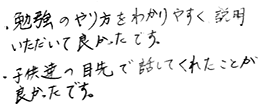 ・勉強のやり方をわかりやすく説明
いただいて良かったです。
・子供達の目先で話してくれたことが
良かったです。